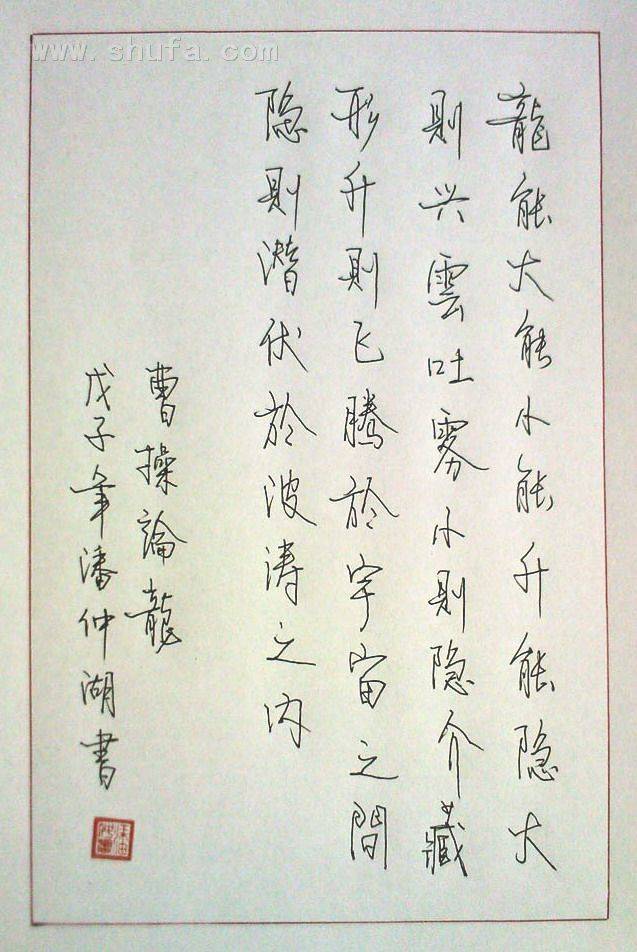 www.shufa.com
龍能大能小能升能隐大
則兴雲吐雾小則隐介藏
形升則飞騰於宇宙之間
隐則潜伏於波涛之内
曹操論龍
戊子年潘仲湖書